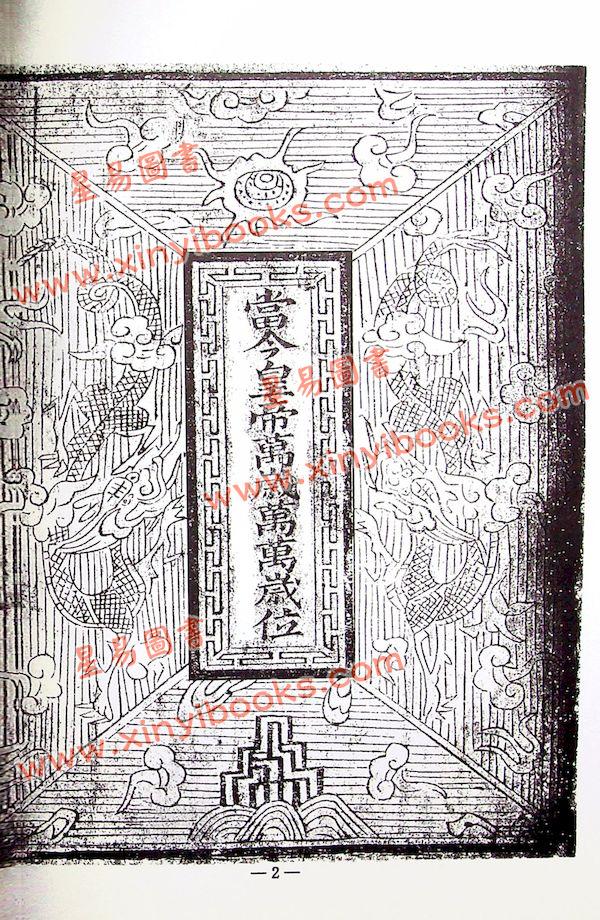 當今皇帝萬歲萬萬歲位
星易圖書
www.xinyibooks.com
星易圖書
www.xinyibooks.com
星易圖書
www.xinyibooks.com
— 2 —